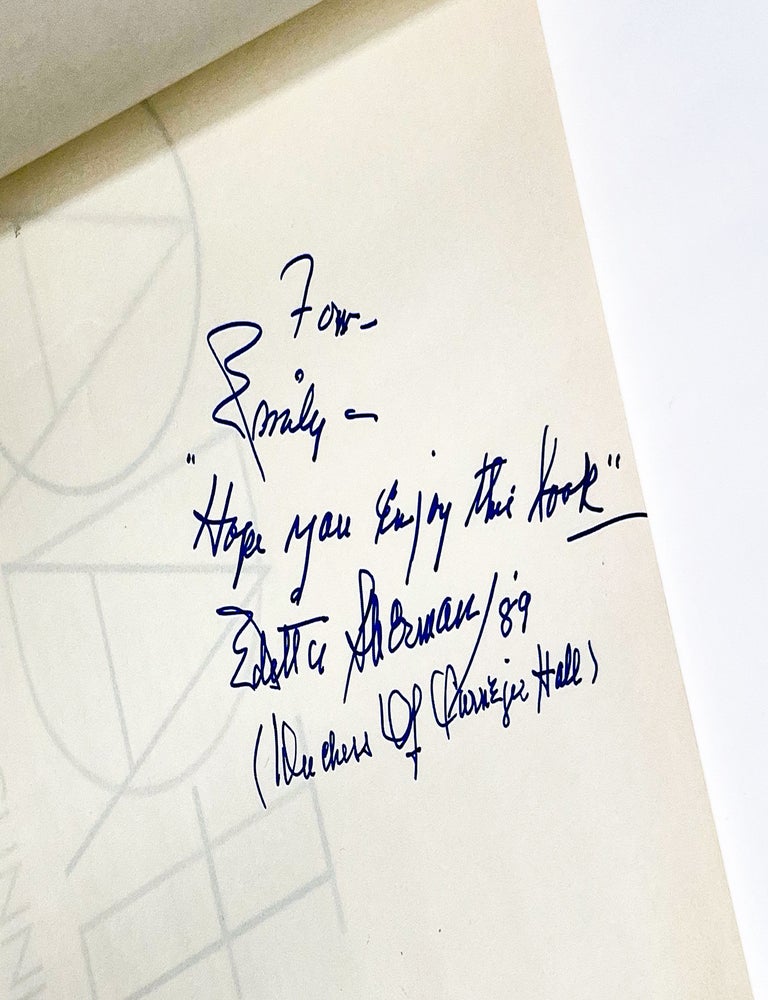 For
Emily –
"Hope you Enjoy this book"
Editta Sherman/'89
(Duchess Of Carnegie Hall)